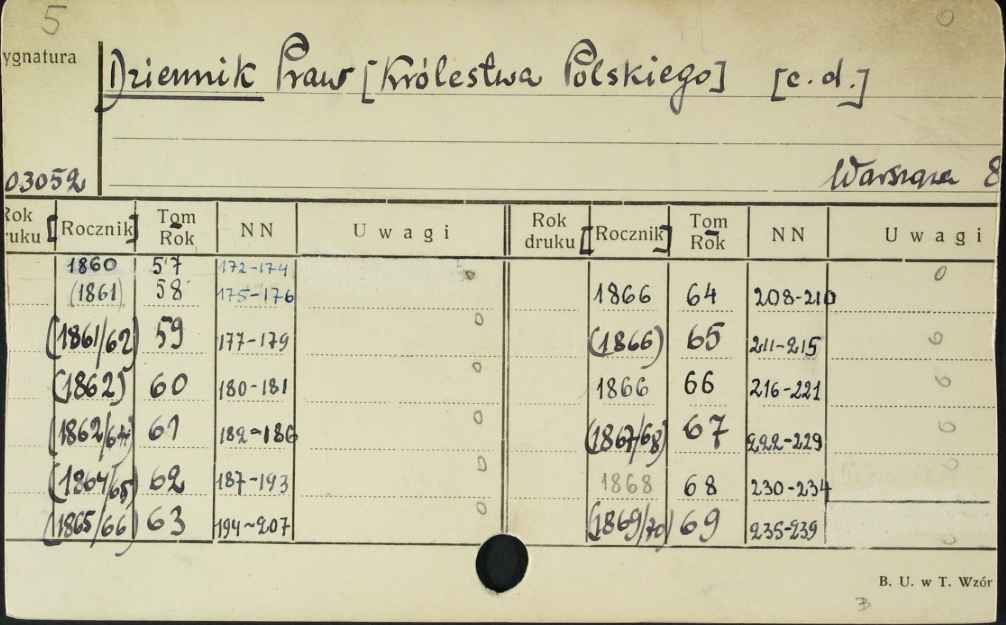 5
ygnatura
Dziennik Praw [Królestwa Polskiego] [c.d.]
03052
Warszawa 8
Rok druku [Rocznik] Tom Rok NN Uwagi Rok druku [Rocznik] Tom Rok NN Uwagi
1860 57 172-174 0
(1861) 58 175-176 1866 64 208-210
(1861/62) 59 177-179 0 (1866) 65 211-215 0
(1862) 60 180-181 0 1866 66 216-221 0
(1862/64) 61 182-186 0 (1867/68) 67 222-229 0
(1864/65) 62 187-193 0 1868 68 230-234 0
(1865/66) 63 194-207 0 (1869/70) 69 235-239
B. U. w T. Wzór
3